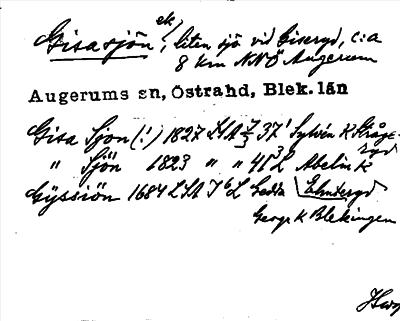 Gisasjön, ek., liten sjö vid Giseryd, c:a
8 km NNÖ Augerum
Augerums sn, Östrahd, Blek. län
Gisa Sjon (!) 1827 LSA 37¹ Sylvén K Kråge-
ryd
" Sjön 1823 " " 41 L Abelin K
Gyssiön 1684 LSA I⁶ L Gedda Ehndsryd
Geogr K Blekingen